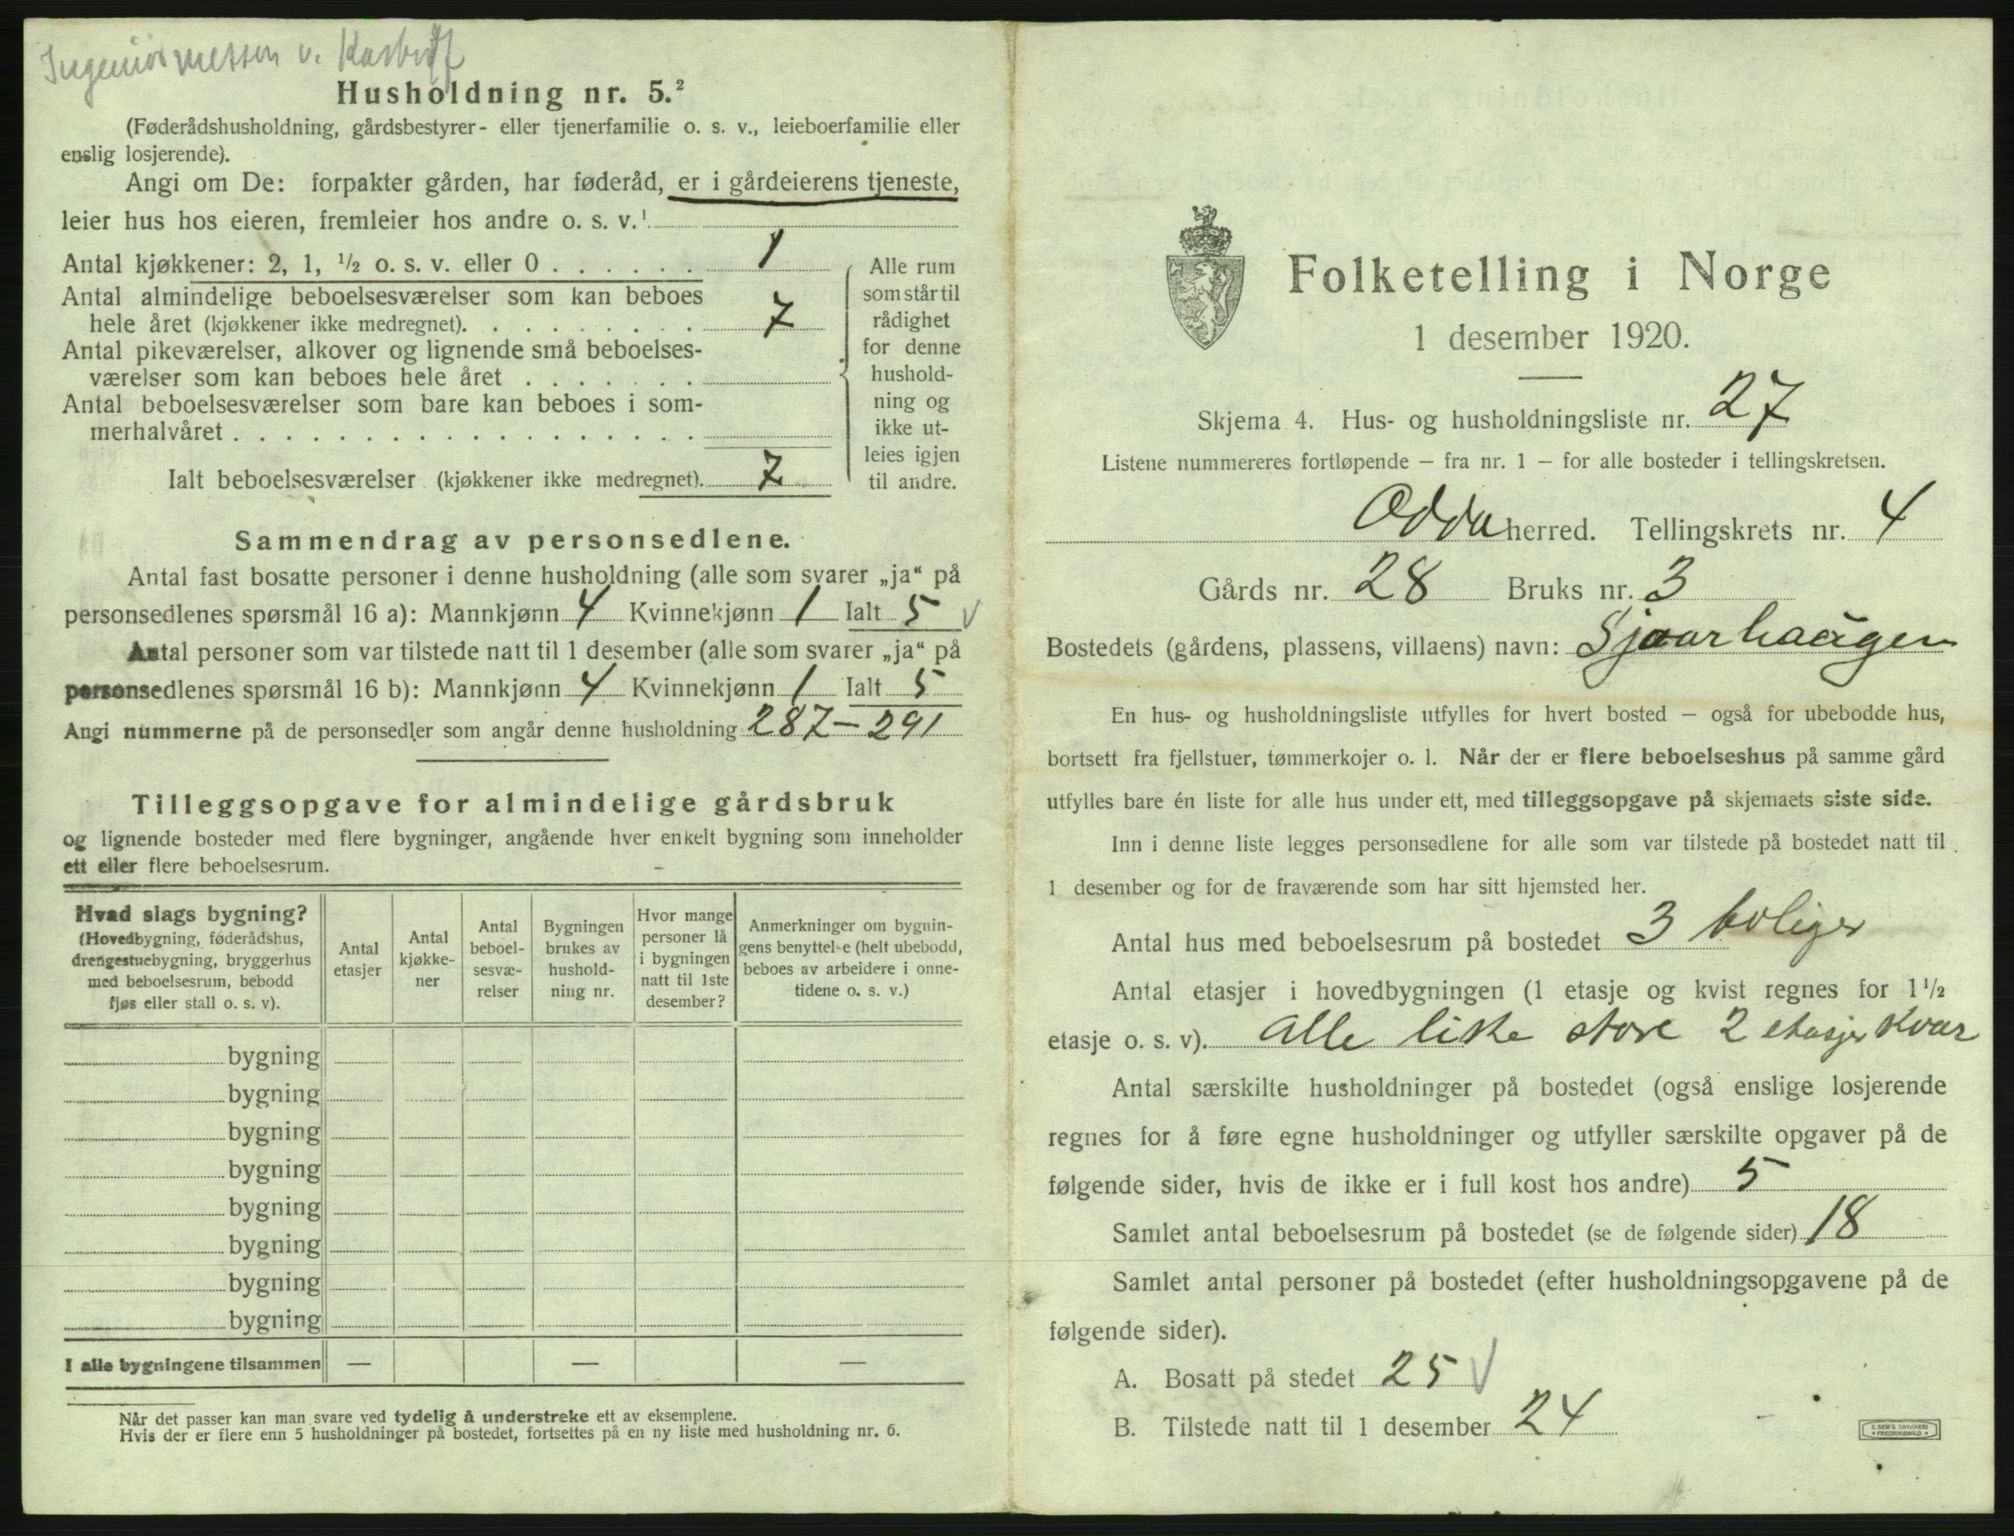 Ingeniørmessen v.
Husholdning nr. 5.²
(Føderådshusholdning, gårdsbestyrer- eller tjenerfamilie o. s. v., leieboerfamilie eller
enslig losjerende).
Angi om De: forpakter gården, har føderåd, er i gårdeierens tjeneste,
leier hus hos eieren, fremleier hos andre o. s. v.¹
Antal kjøkkener: 2, 1, ½ o. s. v. eller 0 . . . . . . 1
Antal almindelige beboelsesværelser som kan beboes
hele året (kjøkkener ikke medregnet). . . . . . . . . 7
Antal pikeværelser, alkover og lignende små beboelses-
værelser som kan beboes hele året . . . . . . .
Antal beboelsesværelser som bare kan beboes i som-
merhalvåret . . . . . . . . . . . . . . . . . .
Ialt beboelsesværelser (kjøkkener ikke medregnet). 7
Alle rum
som står til
rådighet
for denne
hushold-
ning og
ikke ut-
leies igjen
til andre.
Sammendrag av personsedlene.
Antal fast bosatte personer i denne husholdning (alle som svarer „ja“ på
personsedlenes spørsmål 16 a): Mannkjønn 4 Kvinnekjønn 1 Ialt 5 √
Antal personer som var tilstede natt til 1 desember (alle som svarer „ja“ på
personsedlenes spørsmål 16 b): Mannkjønn 4 Kvinnekjønn 1 Ialt 5
Angi nummerne på de personsedler som angår denne husholdning 287 – 291
Tilleggsopgave for almindelige gårdsbruk
og lignende bosteder med flere bygninger, angående hver enkelt bygning som inneholder
ett eller flere beboelsesrum.
Hvad slags bygning?
(Hovedbygning, føderådshus,
drengestuebygning, bryggerhus
med beboelsesrum, bebodd
fjøs eller stall o. s. v).
Antal
etasjer
Antal
kjøkke-
ner
Antal
beboel-
sesvæ-
relser
Bygningen
brukes av
hushold-
ning nr.
Hvor mange
personer lå
i bygningen
natt til 1ste
desember?
Anmerkninger om bygnin-
gens benyttelse (helt ubebodd,
beboes av arbeidere i onne-
tidene o. s. v.)
bygning
bygning
bygning
bygning
bygning
bygning
bygning
bygning
I alle bygningene tilsammen — — —
Når det passer kan man svare ved tydelig å understreke ett av eksemplene.
Hvis der er flere enn 5 husholdninger på bostedet, fortsettes på en ny liste med husholdning nr. 6.
Folketelling i Norge
1 desember 1920.
Skjema 4. Hus- og husholdningsliste nr. 27
Listene nummereres fortløpende – fra nr. 1 – for alle bosteder i tellingskretsen.
Odda herred. Tellingskrets nr. 4
Gårds nr. 28 Bruks nr. 3
Bostedets (gårdens, plassens, villaens) navn: Sjoarhaagen
En hus- og husholdningsliste utfylles for hvert bosted – også for ubebodde hus,
bortsett fra fjellstuer, tømmerkojer o. l. Når der er flere beboelseshus på samme gård
utfylles bare én liste for alle hus under ett, med tilleggsopgave på skjemaets siste side.
Inn i denne liste legges personsedlene for alle som var tilstede på bostedet natt til
1 desember og for de fraværende som har sitt hjemsted her.
Antal hus med beboelsesrum på bostedet 3 boliger
Antal etasjer i hovedbygningen (1 etasje og kvist regnes for 1½
etasje o. s. v). Alle like store 2 etasjer kvar
Antal særskilte husholdninger på bostedet (også enslige losjerende
regnes for å føre egne husholdninger og utfyller særskilte opgaver på de
følgende sider, hvis de ikke er i full kost hos andre) 5
Samlet antal beboelsesrum på bostedet (se de følgende sider) 18
Samlet antal personer på bostedet (efter husholdningsopgavene på de
følgende sider).
A. Bosatt på stedet 25 √
B. Tilstede natt til 1 desember 24